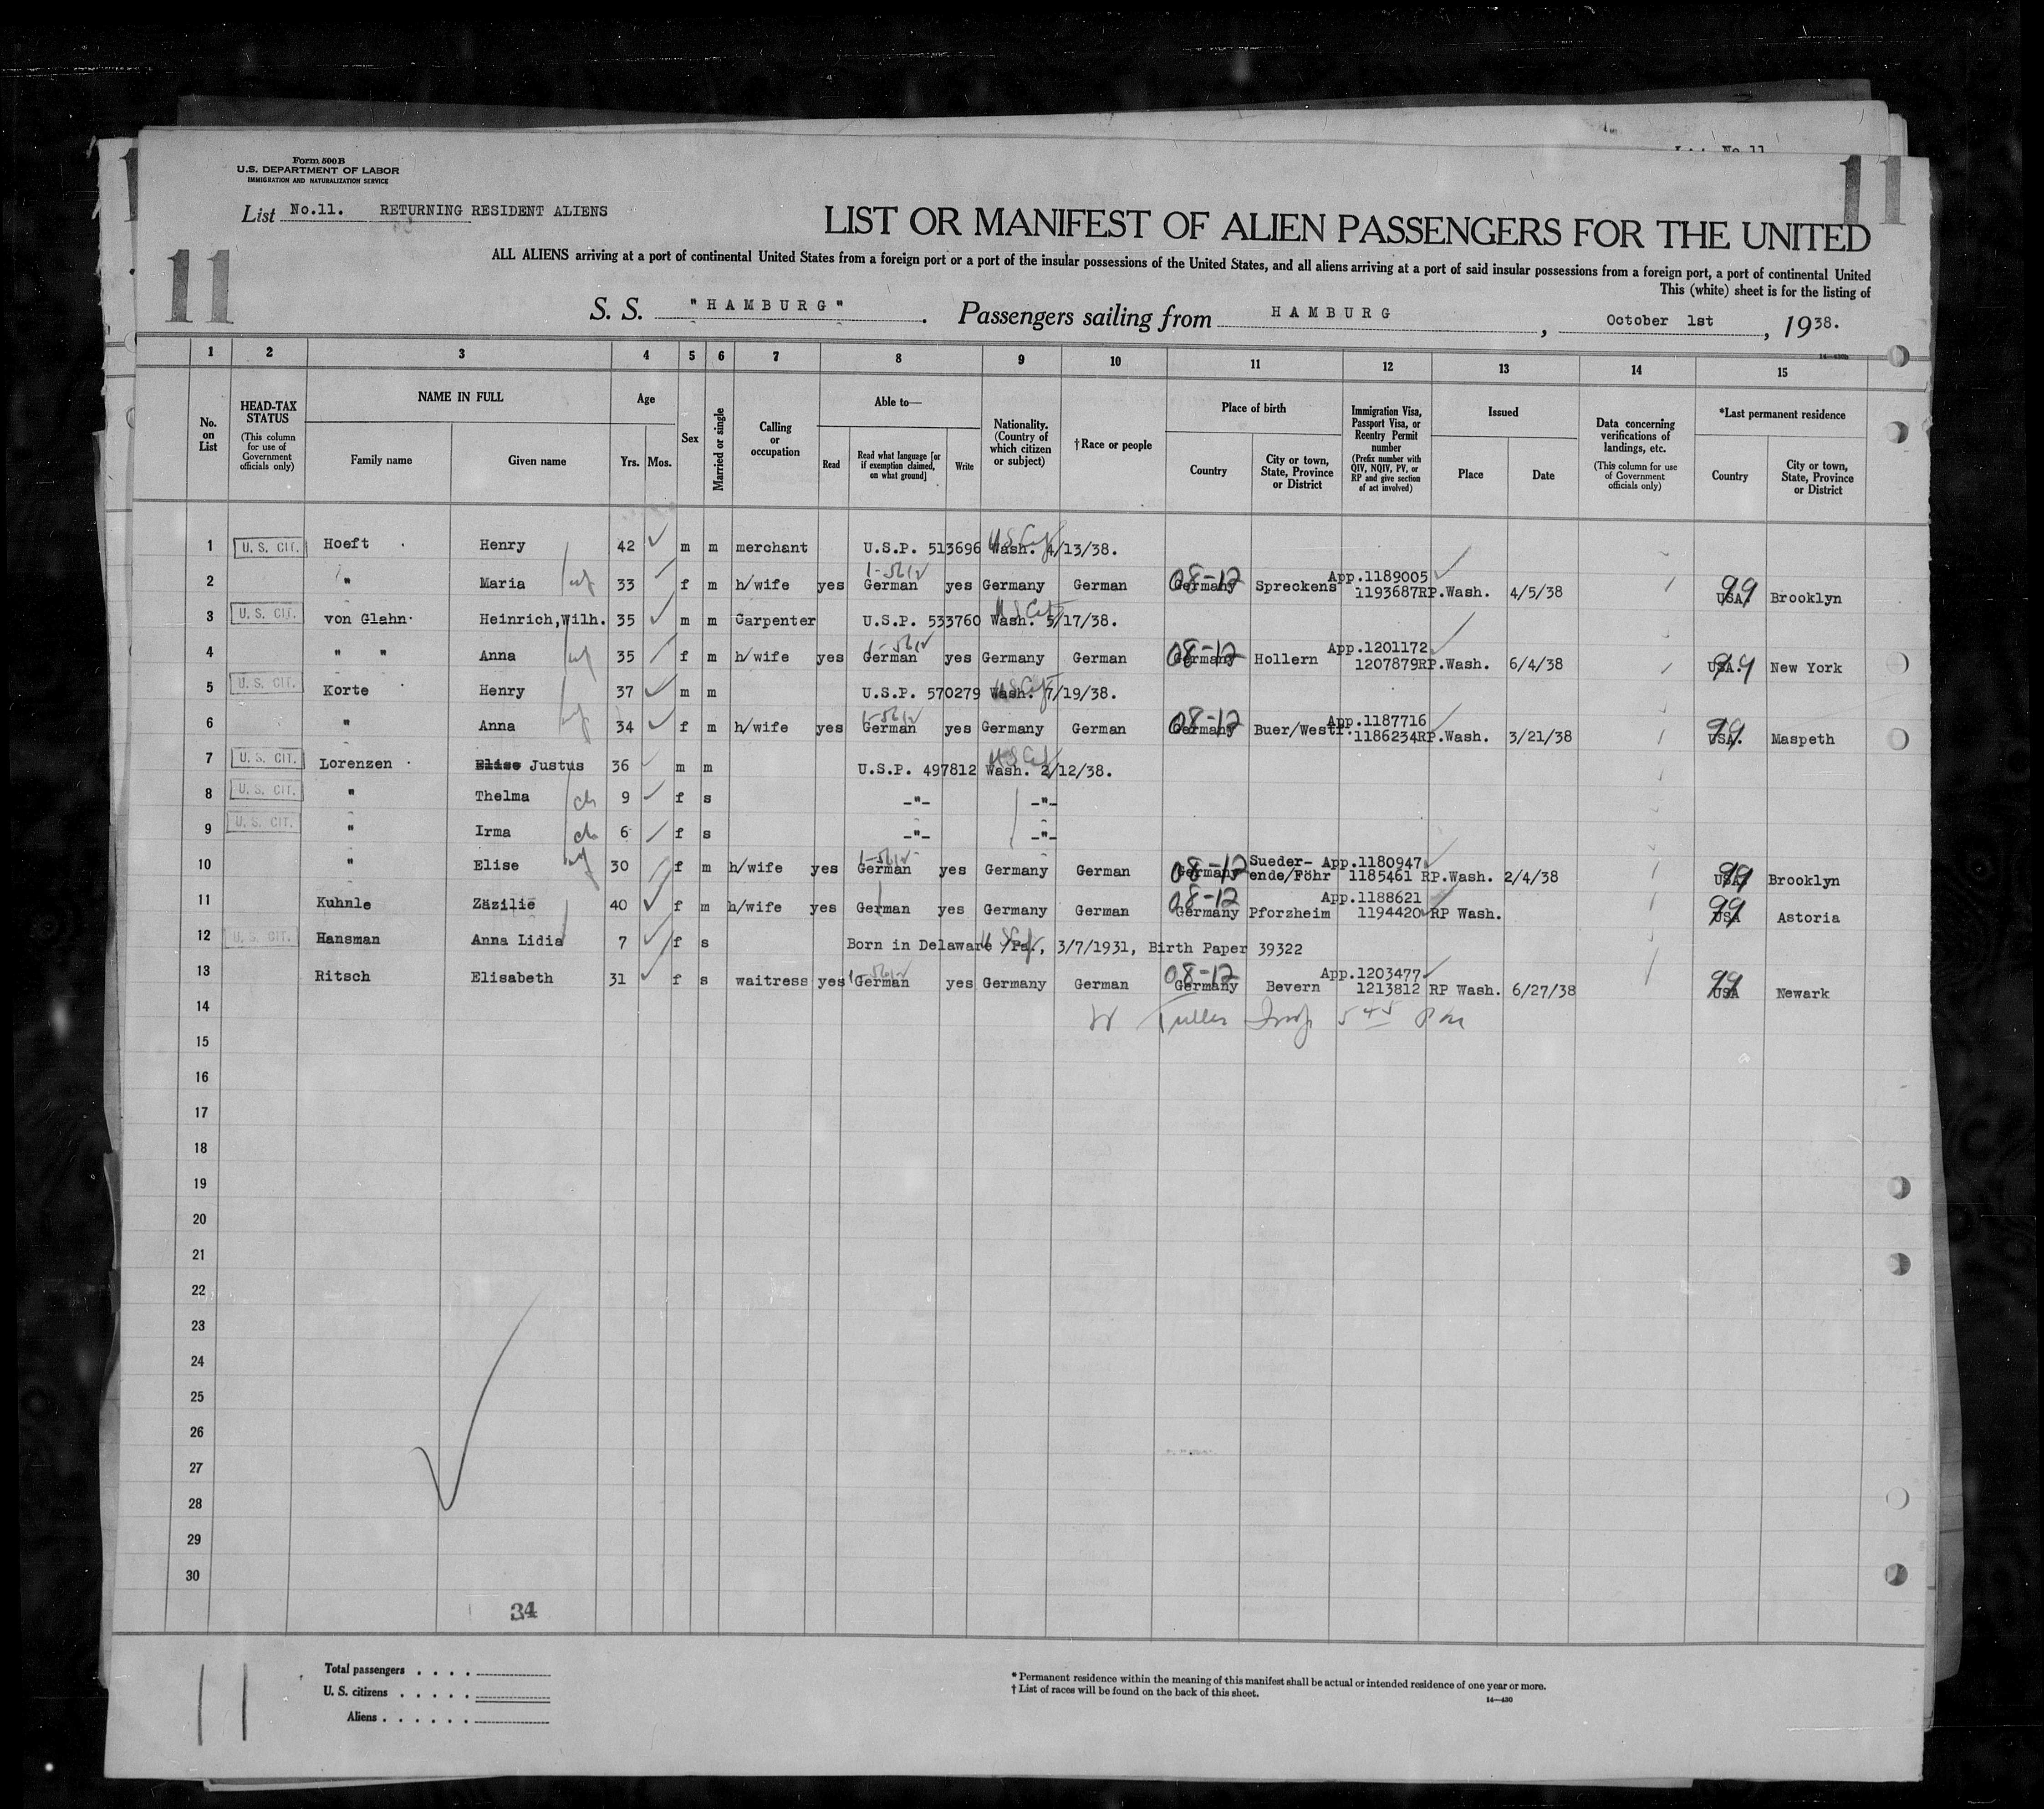 Form 500 B
U.S. DEPARTMENT OF LABOR
IMMIGRATION AND NATURALIZATION SERVICE
List No.11. RETURNING RESIDENT ALIENS
11
11
LIST OR MANIFEST OF ALIEN PASSENGERS FOR THE UNITED
ALL ALIENS arriving at a port of continental United States from a foreign port or a port of the insular possessions of the United States, and all aliens arriving at a port of said insular possessions from a foreign port, a port of continental United
This (white) sheet is for the listing of
S. S. "HAMBURG". Passengers sailing from HAMBURG, October 1st, 1938.
14—430b
1 2 3 4 5 6 7 8 9 10 11 12 13 14 15
No. on List
HEAD-TAX STATUS (This column for use of Government officials only)
NAME IN FULL
Family name Given name
Age
Yrs. Mos.
Sex
Married or single
Calling or occupation
Able to—
Read
Read what language [or if exemption claimed, on what ground]
Write
Nationality. (Country of which citizen or subject)
†Race or people
Place of birth
Country
City or town, State, Province or District
Immigration Visa, Passport Visa, or Reentry Permit number (Prefix number with QIV, NQIV, PV, or RP and give section of act involved)
Issued
Place Date
Data concerning verifications of landings, etc. (This column for use of Government officials only)
*Last permanent residence
Country
City or town, State, Province or District
1 U. S. CIT. Hoeft Henry 42 m m merchant U.S.P. 513696 Wash. 4/13/38.
2 " Maria wf 33 f m h/wife yes German yes Germany German 08-12 Germany Spreckens App.1189005 1193687RP.Wash. 4/5/38 99 USA. Brooklyn
3 U. S. CIT. von Glahn Heinrich,Wilh. 35 m m Carpenter U.S.P. 533760 Wash. 5/17/38.
4 " " Anna wf 35 f m h/wife yes German yes Germany German 08-12 Germany Hollern App.1201172 1207879RP.Wash. 6/4/38 99 USA. New York
5 U. S. CIT. Korte Henry 37 m m U.S.P. 570279 Wash. 7/19/38.
6 " Anna wf 34 f m h/wife yes German yes Germany German 08-12 Germany Buer/Westf. App.1187716 1186234RP.Wash. 3/21/38 99 USA. Maspeth
7 U. S. CIT. Lorenzen Elise Justus 36 m m U.S.P. 497812 Wash. 2/12/38.
8 U. S. CIT. " Thelma ch 9 f s -"- -"-
9 U. S. CIT. " Irma ch 6 f s -"- -"-
10 " Elise wf 30 f m h/wife yes German yes Germany German 08-12 Germany Sueder-ende/Föhr App.1180947 1185461 RP.Wash. 2/4/38 99 USA Brooklyn
11 Kuhnle Zäzilie 40 f m h/wife yes German yes Germany German 08-12 Germany Pforzheim App.1188621 1194420 RP Wash. 99 USA Astoria
12 U. S. CIT. Hansman Anna Lidia 7 f s Born in Delaware /Pa., 3/7/1931, Birth Paper 39322
13 Ritsch Elisabeth 31 f s waitress yes German yes Germany German 08-12 Germany Bevern App.1203477 1213812 RP Wash. 6/27/38 99 USA Newark
14
15
16
17
18
19
20
21
22
23
24
25
26
27
28
29
30
34
11
Total passengers
U. S. citizens
Aliens
* Permanent residence within the meaning of this manifest shall be actual or intended residence of one year or more.
† List of races will be found on the back of this sheet.
14—430